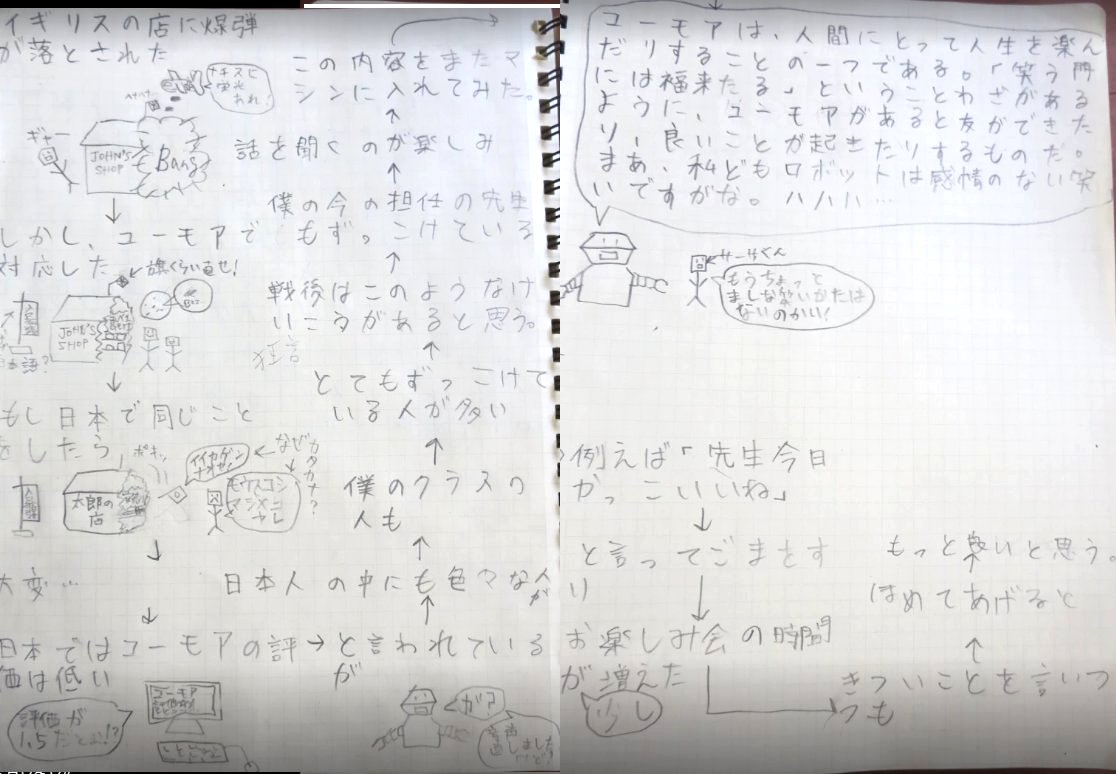 イギリスの店に爆弾
が落とされた
ギャー
JOHN'S
SHOP
Bang
しかし、ユーモアで
対応した
旗くらい直せ!
JOHN'S
SHOP
もし日本で同じこと
をしたら、
ポキッ
イイカゲン
ナオセ!
なぜカタカナ?
太郎の
店
モウスコシ
マジメニ
ヤレ
大変…
日本ではユーモアの評
価は低い
評価が
1.5だとお!?
と言われている
が
が?
日本人の中にも色々な人が
僕のクラスの
人も
とてもずっこけて
いる人が多い
狂言
戦後はこのようなけ
いこうがあると思う。
僕の今の担任の先生
もずっこけている
話を聞くのが楽しみ
この内容をまたマ
シンに入れてみた。
ユーモアは、人間にとって人生を楽ん
だりすることの一つである。「笑う門
には福来たる」ということわざがある
ように、ユーモアがあると友ができた
り、良いことが起きたりするものだ。
まあ、私どもロボットは感情のない笑
いですがな。ハハハ…
サーサくん
もうちょっと
ましな笑いかたは
ないのかい!
例えば「先生今日
かっこいいね」
と言ってごまをす
り
お楽しみ会の時間
が増えた
少し
きついことを言いつ
つも
ほめてあげると
もっと良いと思う。